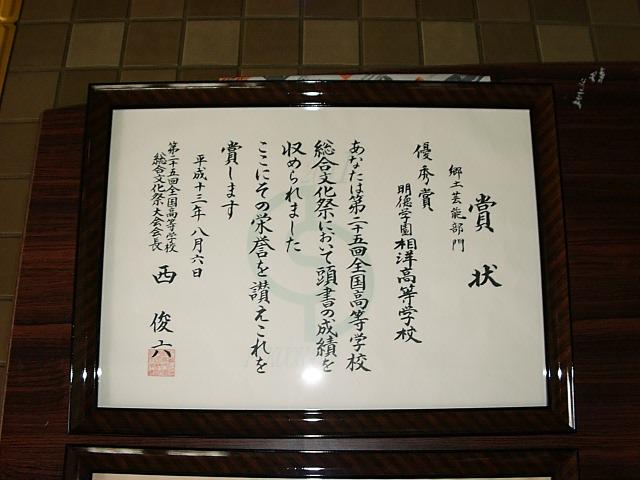 賞状
郷土芸能部門
優秀賞
明徳学園相洋高等学校
あなたは第二十五回全国高等学校
総合文化祭において頭書の成績を
収められました
ここにその栄誉を讃えこれを
賞します
平成十三年八月六日
第二十五回全国高等学校
総合文化祭大会会長
西俊六